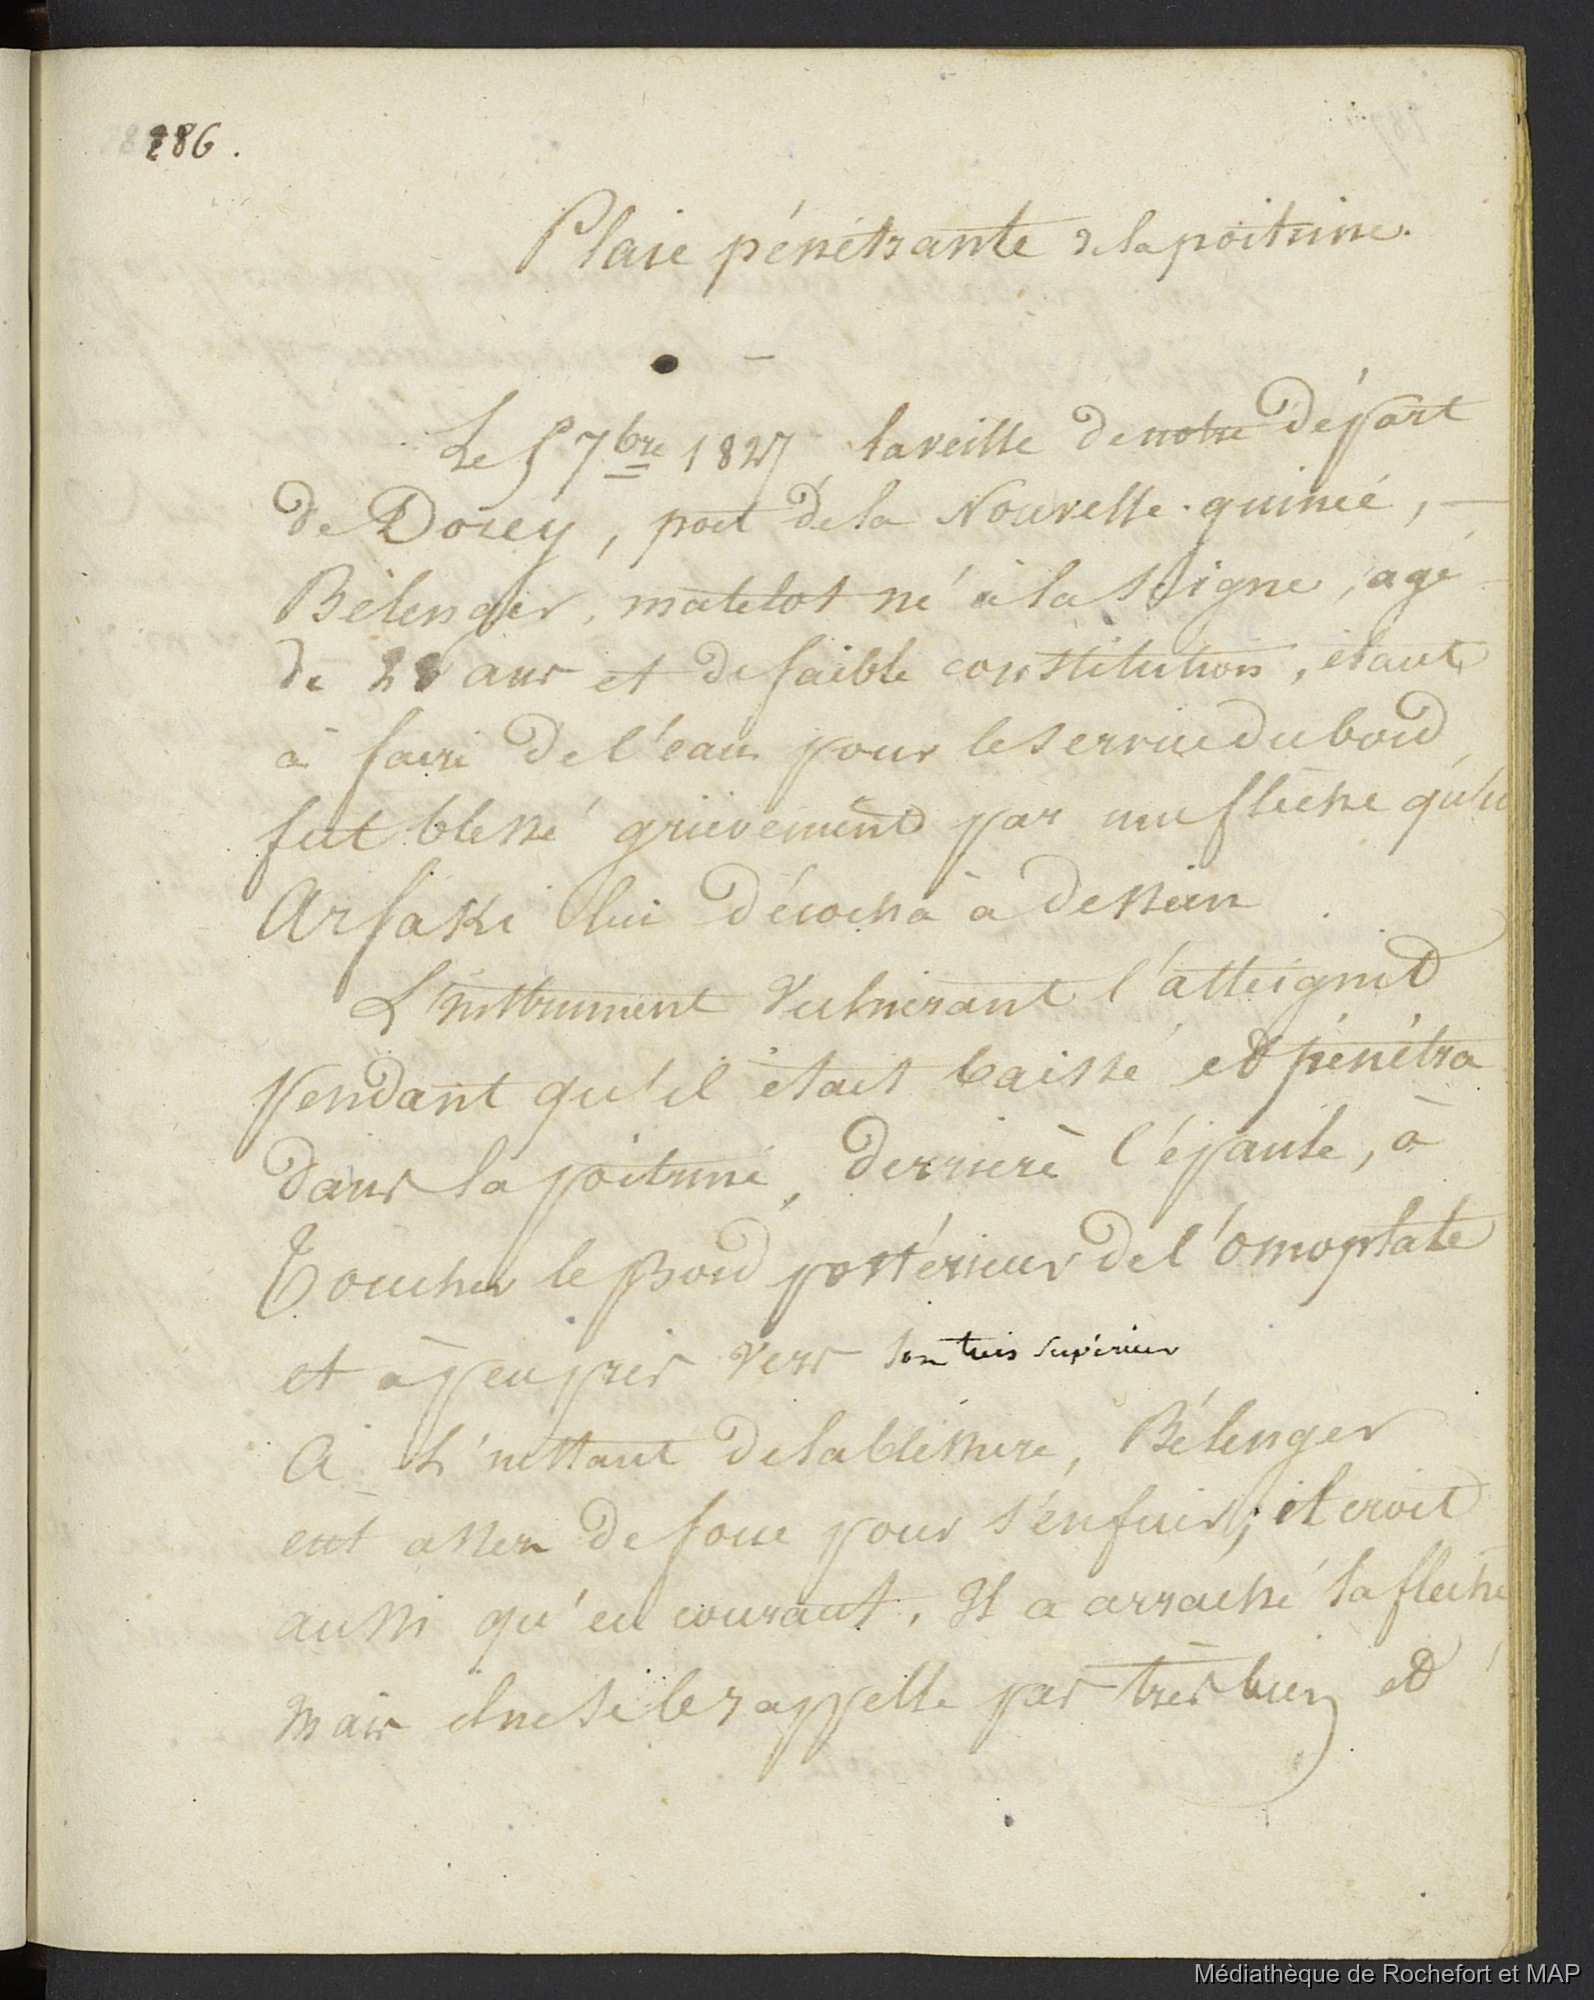 286.
Plaie pénétrante de la poitrine.
Le 5 7bre 1827 la veille de notre départ
de Dorey, port de la Nouvelle-guinée,
Bélenger, matelot né à la Seigne, agé
de 22 ans et de faible constitution, étant
à faire de l'eau pour le service du bord
fut blessé grièvement par une flèche qu'un
Arfaki lui décocha à dessein
L'instrument vulnérant l'atteignit
pendant qu'il était baissé et pénétra
dans la poitrine, derrière l'épaule, à
toucher le bord postérieur de l'omoplate
et à peu près vers son tiers supérieur
A l'instant de la blessure, Bélenger
eut assez de force pour s'enfuir; il croit
aussi qu'en courant, Il a arraché la flèche
mais il ne se le rappelle pas très bien et
Médiathèque de Rochefort et MAP